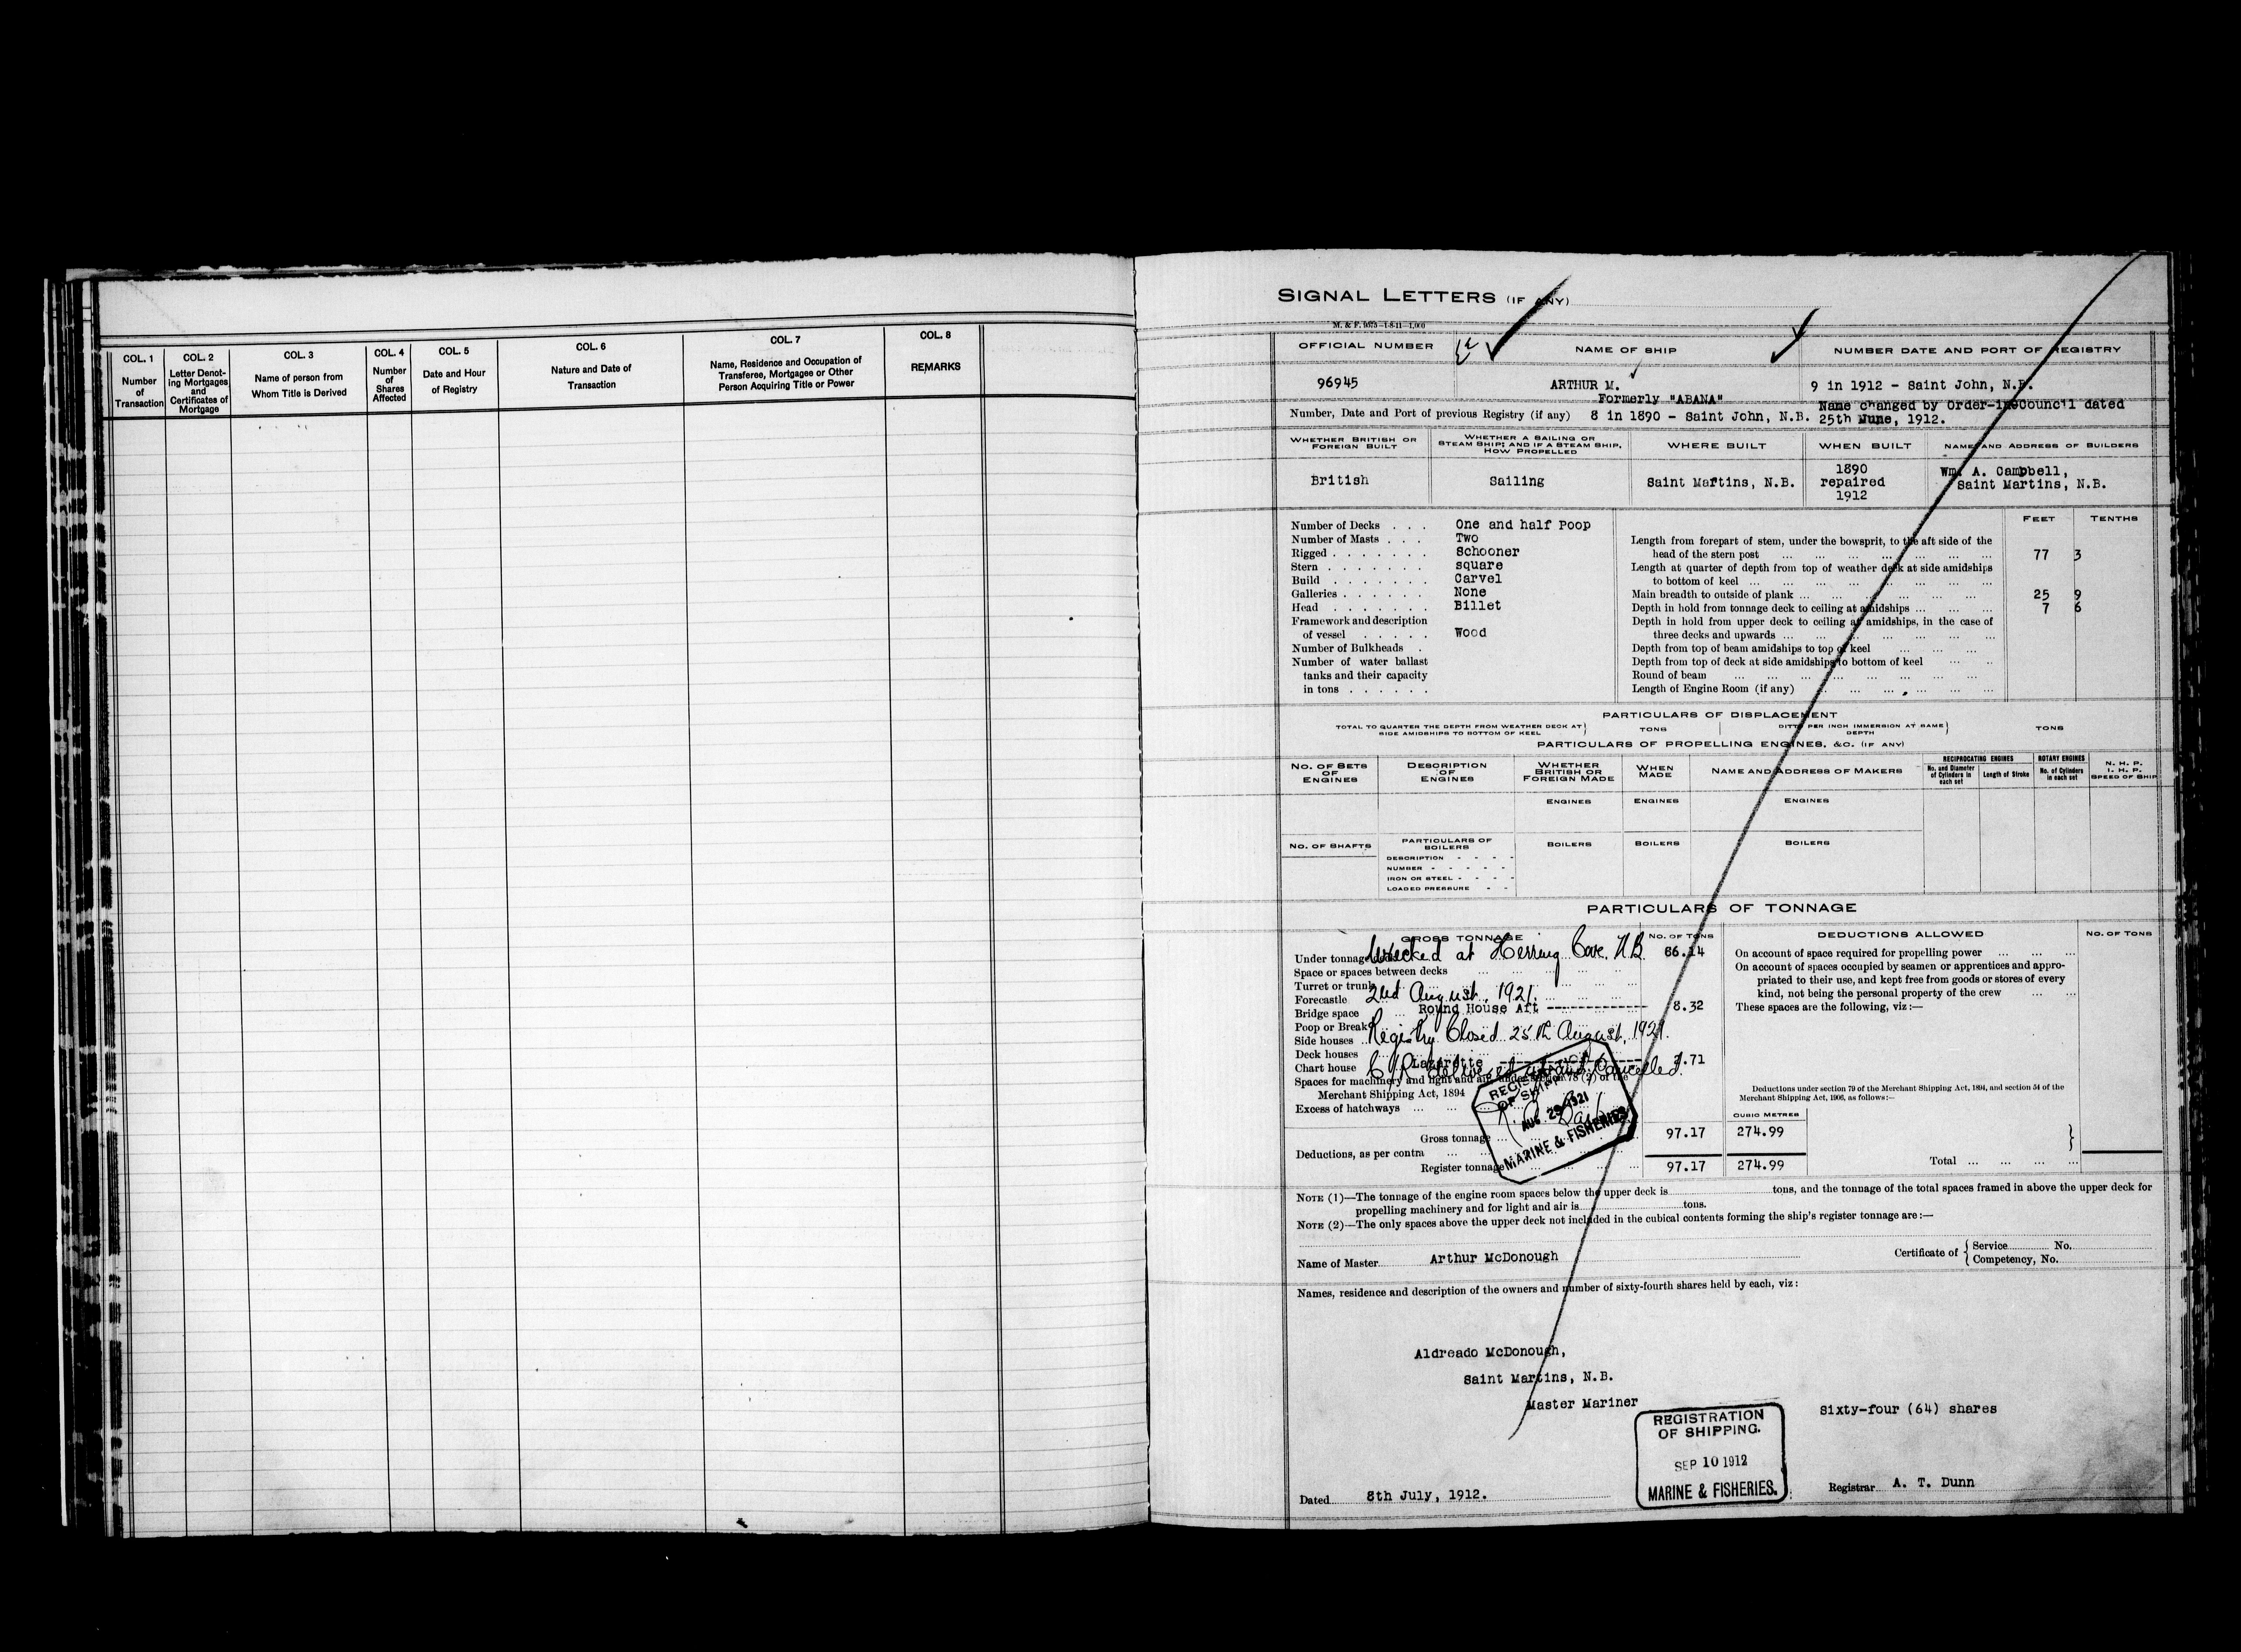 COL. 1
Number
of
Transaction
COL. 2
Letter Denot-
ing Mortgages
and
Certificates of
Mortgage
COL. 3
Name of person from
Whom Title is Derived
COL. 4
Number
of
Shares
Affected
COL. 5
Date and Hour
of Registry
COL. 6
Nature and Date of
Transaction
COL. 7
Name, Residence and Occupation of
Transferee, Mortgagee or Other
Person Acquiring Title or Power
COL. 8
REMARKS
SIGNAL LETTERS (IF ANY)
M. & F. 9573-1-8-11-1,000
OFFICIAL NUMBER
NAME OF SHIP
NUMBER DATE AND PORT OF REGISTRY
96945
ARTHUR M.
9 in 1912 - Saint John, N.B.
Formerly "ABANA"
Name changed by Order-in-Council dated
Number, Date and Port of previous Registry (if any) 8 in 1890 - Saint John, N.B. 25th June, 1912.
WHETHER BRITISH OR
FOREIGN BUILT
WHETHER A SAILING OR
STEAM SHIP; AND IF A STEAM SHIP,
HOW PROPELLED
WHERE BUILT
WHEN BUILT
NAME AND ADDRESS OF BUILDERS
British
Sailing
Saint Martins, N.B.
1890
repaired
1912
Wm. A. Campbell,
Saint Martins, N.B.
Number of Decks . . . One and half Poop
Number of Masts . . . Two
Rigged . . . . . . . Schooner
Stern . . . . . . . square
Build . . . . . . . Carvel
Galleries . . . . . . None
Head . . . . . . . Billet
Framework and description
of vessel . . . . . Wood
Number of Bulkheads .
Number of water ballast
tanks and their capacity
in tons . . . . . .
FEET TENTHS
Length from forepart of stem, under the bowsprit, to the aft side of the
head of the stern post 77 3
Length at quarter of depth from top of weather deck at side amidships
to bottom of keel
Main breadth to outside of plank 25 9
Depth in hold from tonnage deck to ceiling at amidships 7 6
Depth in hold from upper deck to ceiling at amidships, in the case of
three decks and upwards
Depth from top of beam amidships to top of keel
Depth from top of deck at side amidships to bottom of keel
Round of beam
Length of Engine Room (if any)
PARTICULARS OF DISPLACEMENT
TOTAL TO QUARTER THE DEPTH FROM WEATHER DECK AT
SIDE AMIDSHIPS TO BOTTOM OF KEEL
TONS
DITTO PER INCH IMMERSION AT SAME
DEPTH
TONS
PARTICULARS OF PROPELLING ENGINES, &C. (IF ANY)
NO. OF SETS
OF
ENGINES
DESCRIPTION
OF
ENGINES
WHETHER
BRITISH OR
FOREIGN MADE
WHEN
MADE
NAME AND ADDRESS OF MAKERS
RECIPROCATING ENGINES
No. and Diameter
of Cylinders in
each set
Length of Stroke
ROTARY ENGINES
No. of Cylinders
in each set
N. H. P.
I. H. P.
SPEED OF SHIP
ENGINES
ENGINES
ENGINES
NO. OF SHAFTS
PARTICULARS OF
BOILERS
DESCRIPTION
NUMBER
IRON OR STEEL
LOADED PRESSURE
BOILERS
BOILERS
BOILERS
PARTICULARS OF TONNAGE
GROSS TONNAGE
NO. OF TONS
DEDUCTIONS ALLOWED
NO. OF TONS
Wrecked at Herring Cove, N.B.
2nd August, 1921.
Registry Closed 25th August, 1921.
C/R delivered up and Cancelled.
Under tonnage 86.14
Space or spaces between decks
Turret or trunk
Forecastle
Bridge space Round House Aft 8.32
Poop or Break
Side houses
Deck houses
Chart house Lazarette .71
Spaces for machinery and light and air, under section 78 (2) of the
Merchant Shipping Act, 1894
Excess of hatchways
REGISTRATION
OF SHIPPING
AUG 29 1921
MARINE & FISHERIES
CUBIC METRES
Gross tonnage 97.17 274.99
Deductions, as per contra
Register tonnage 97.17 274.99
On account of space required for propelling power
On account of spaces occupied by seamen or apprentices and appro-
priated to their use, and kept free from goods or stores of every
kind, not being the personal property of the crew
These spaces are the following, viz:—
Deductions under section 79 of the Merchant Shipping Act, 1894, and section 54 of the
Merchant Shipping Act, 1906, as follows:—
Total
NOTE (1)—The tonnage of the engine room spaces below the upper deck is tons, and the tonnage of the total spaces framed in above the upper deck for
propelling machinery and for light and air is tons.
NOTE (2)—The only spaces above the upper deck not included in the cubical contents forming the ship's register tonnage are:—
Name of Master Arthur McDonough
Certificate of { Service No.
Competency, No.
Names, residence and description of the owners and number of sixty-fourth shares held by each, viz:
Aldreado McDonough,
Saint Martins, N.B.
Master Mariner
Sixty-four (64) shares
REGISTRATION
OF SHIPPING.
SEP 10 1912
MARINE & FISHERIES.
Dated 8th July, 1912.
Registrar A. T. Dunn